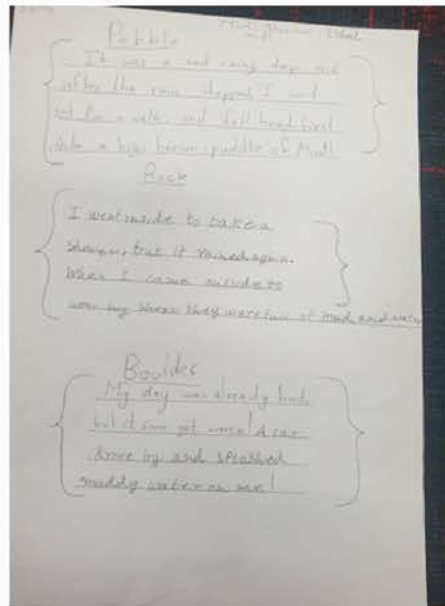 Pebble
It was a sad rainy day, and
after the rain stopped I went
out for a walk, and fell head first
into a big, brown puddle of Mud!
Rock
I went inside to take a
shower, but it rained again.
When I came outside to
wear my shoes they were full of mud and water
Boulder
My day was already bad,
but it even got worse! A car
drove by and splashed
muddy water on me!